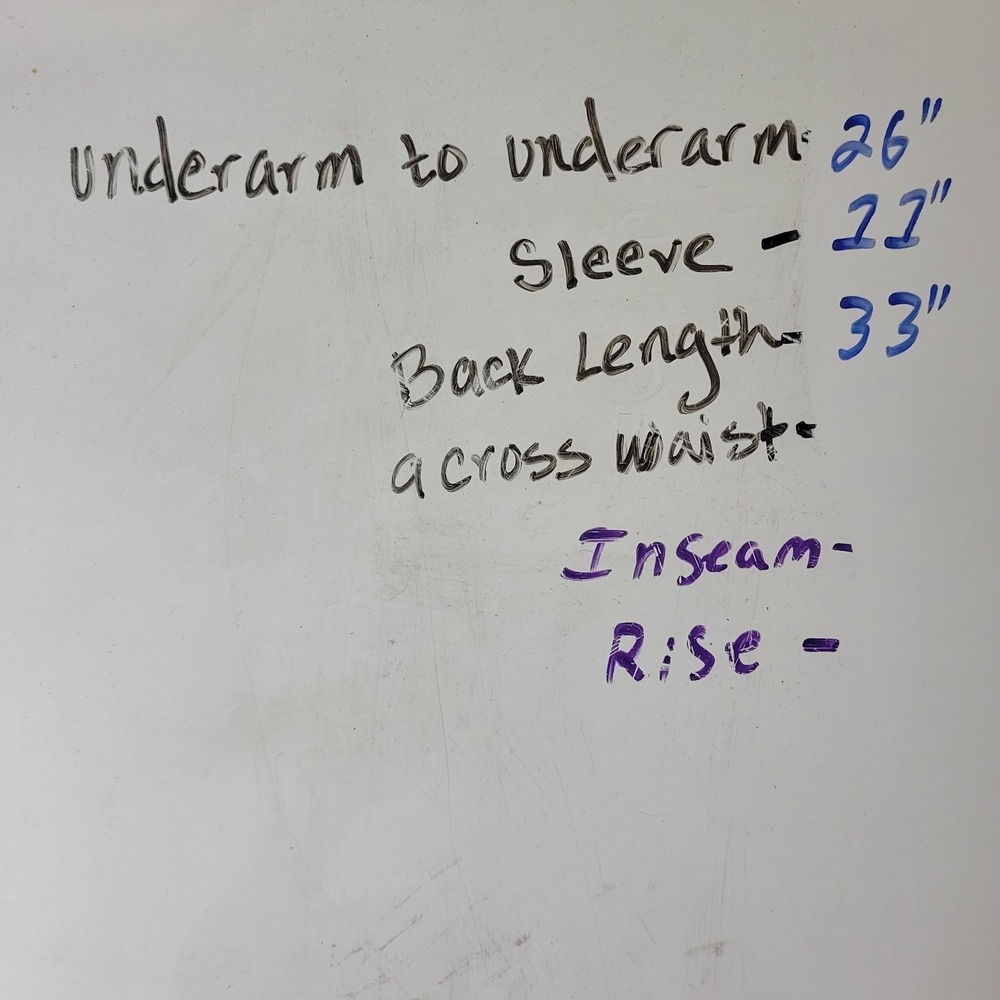 underarm to underarm- 26"
Sleeve - 11"
Back Length- 33"
across waist-
Inseam-
Rise -